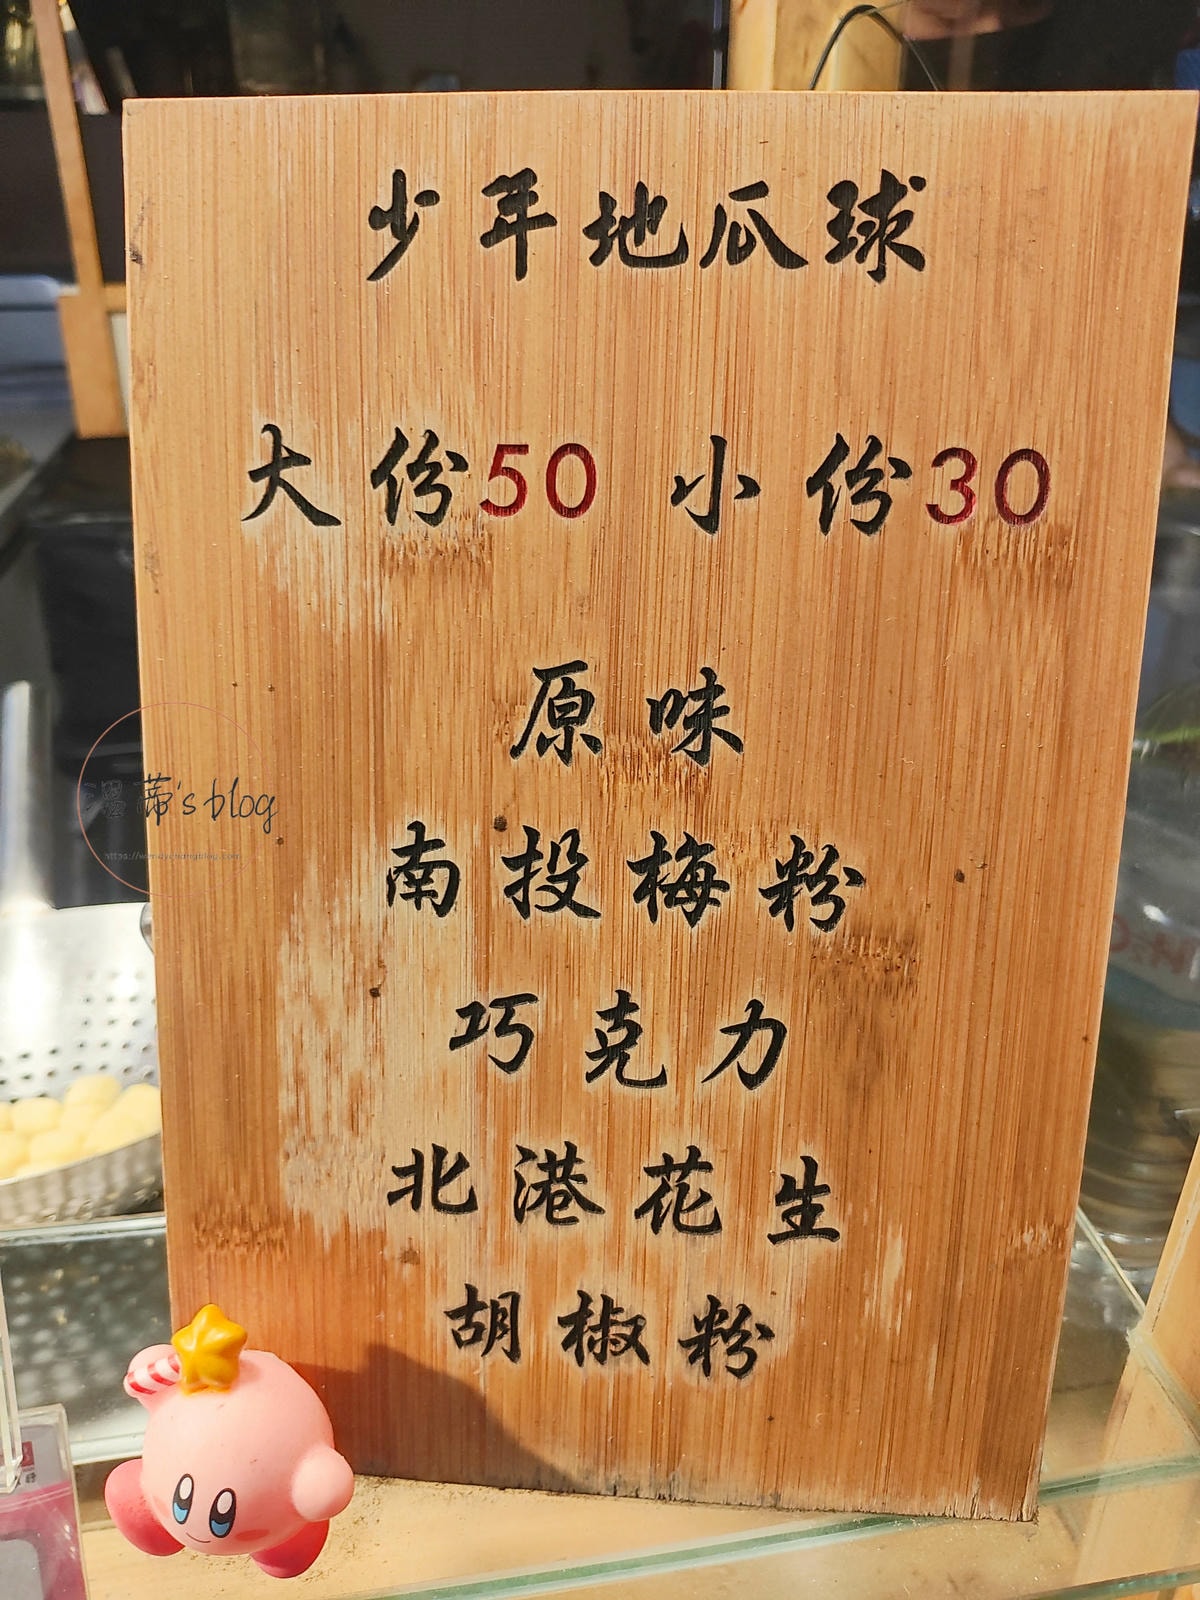 少年地瓜球
大份50 小份30
原味
南投梅粉
巧克力
北港花生
胡椒粉
蒂's blog